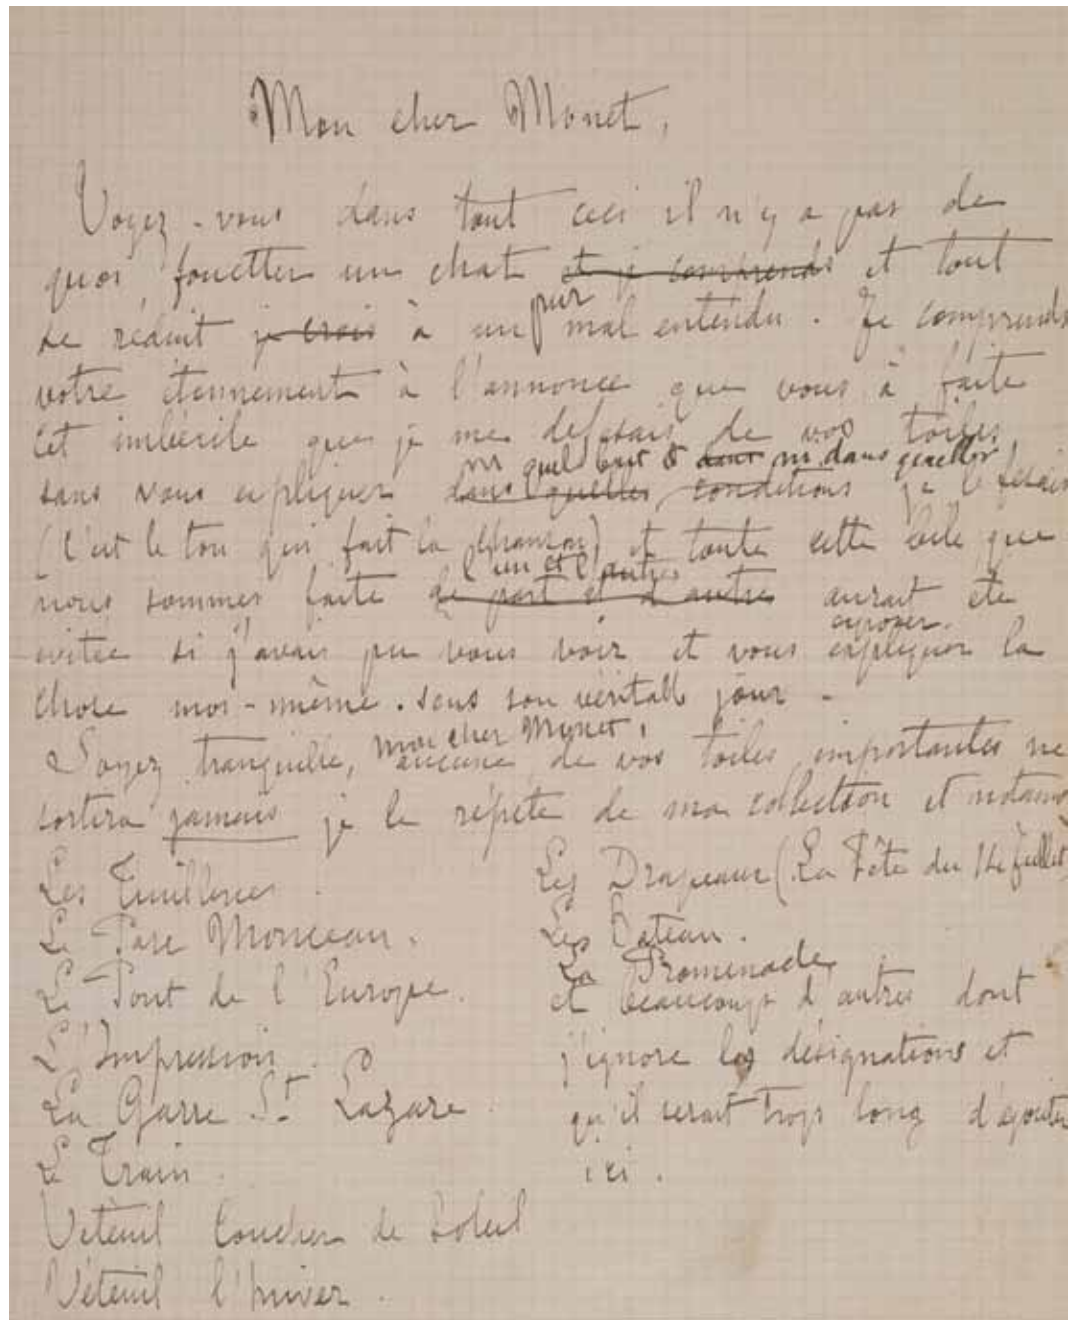 Mon cher Monet,
Voyez-vous dans tout ceci il n'y a pas de
quoi fouetter un chat et je comprends et tout
pur
se réduit je crois à un mal entendu. Je comprends
votre étonnement à l'annonce que vous à faite
cet imbécile que je me defesais de vos toiles,
ni quel but & dans ni dans quelles
sans vous expliquer dans quelles conditions je le fesais
(C'est le ton qui fait la chanson) et toute cette bile que
l'un et l'autre
nous sommes faite de part et d'autre aurait été
exposer.
evitée si j'avais pu vous voir et vous expliquer la
chose moi-même. sous son véritable jour -
mon cher Monet,
Soyez tranquille, aucune de vos toiles importantes ne
sortira jamais je le répète de ma collection et notamt
Les Tuilleries
Le Parc Monceau.
Le Pont de l'Europe.
L'Impression.
La Garre St Lazare.
Le Train.
Véteuil Coucher de Soleil
Véteuil l'hiver.
Les Drapeaux (La Fête du 14 juillet)
Les Bateau.
La Promenade
et beaucoup d'autres dont
j'ignore les désignations et
qu'il serait trop long d'ajouter
ici.